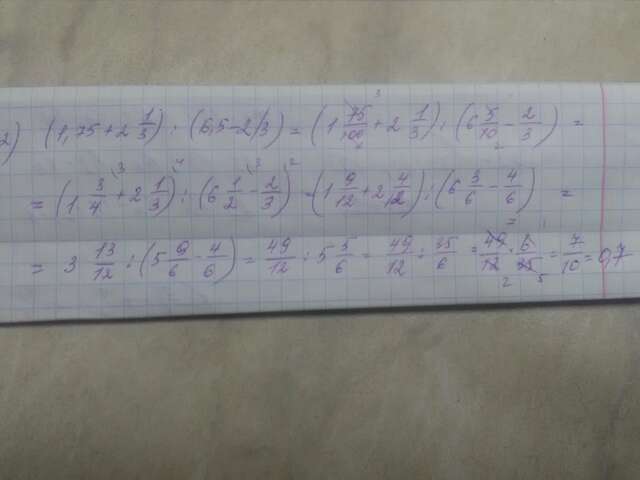 2) (1,75 + 2 1/3) : (6,5 - 2/3) = (1 75/100 + 2 1/3) : (6 5/10 - 2/3) =
= (1 3/4 + 2 1/3) : (6 1/2 - 2/3) = (1 9/12 + 2 4/12) : (6 3/6 - 4/6) =
= 3 13/12 : (5 9/6 - 4/6) = 49/12 : 5 5/6 = 49/12 : 35/6 = 49/12 · 6/35 = 7/10 = 0,7